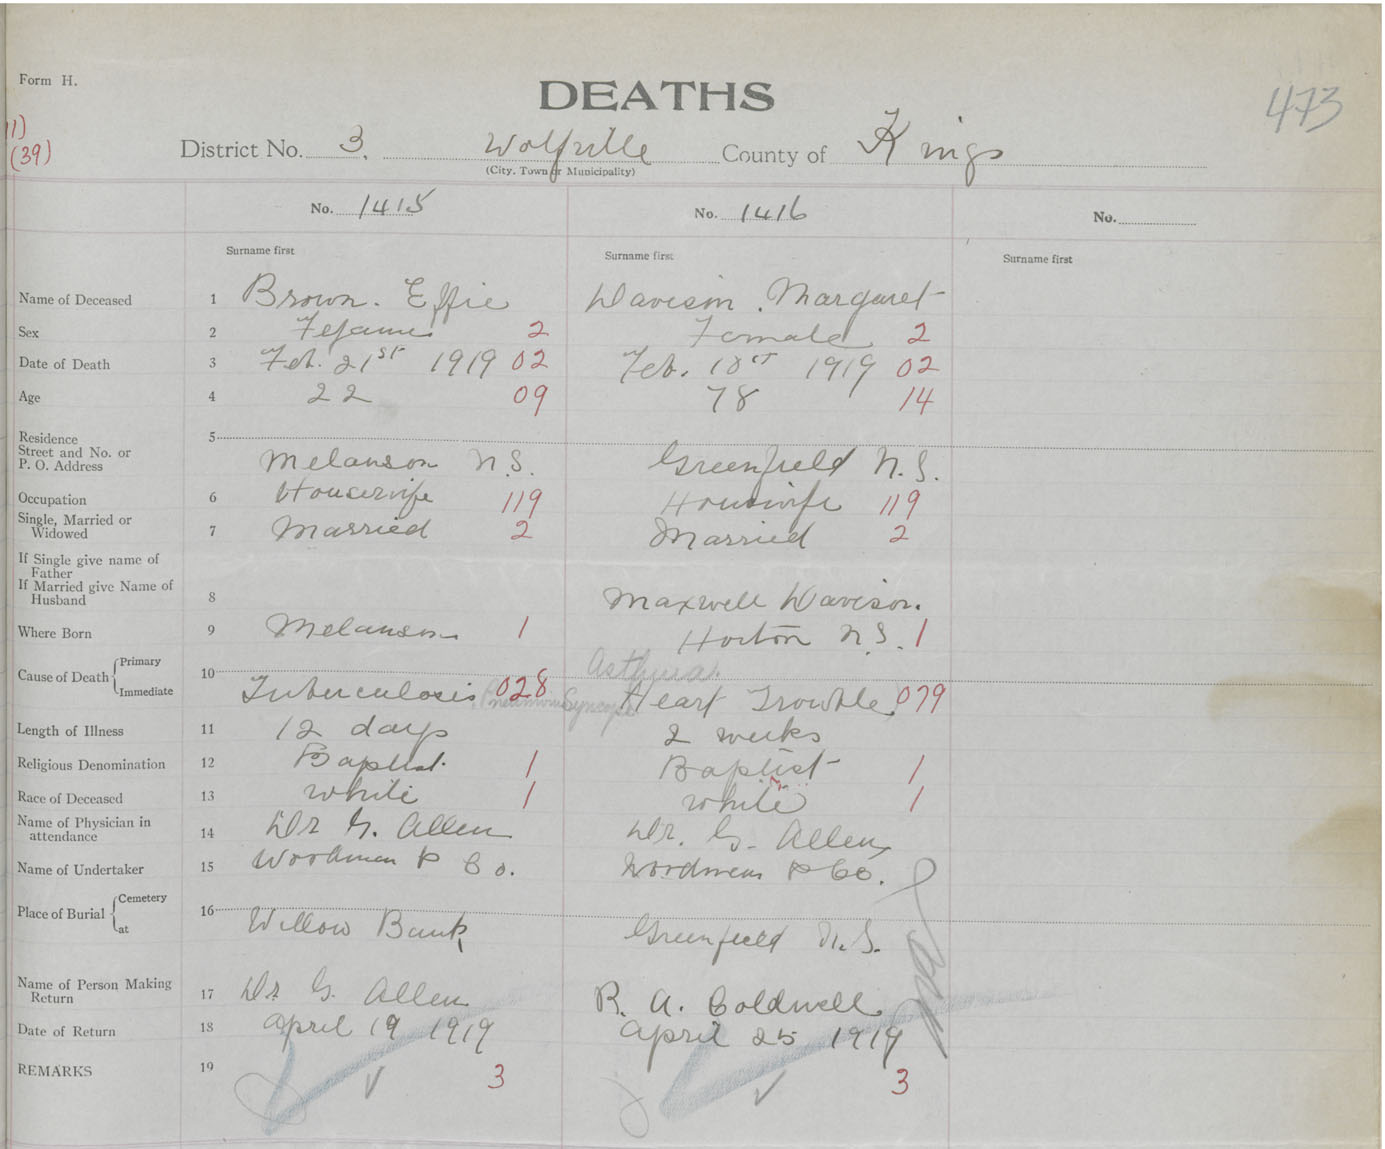 Form H.
DEATHS
473
1)
(39)
District No. 3. Wolfville County of Kings
(City, Town or Municipality)
No. 1415 No. 1416 No.
Surname first Surname first Surname first
Name of Deceased 1 Brown. Effie Davison. Margaret
Sex 2 Female 2 Female 2
Date of Death 3 Feb. 21st 1919 02 Feb. 10st 1919 02
Age 4 22 09 78 14
Residence 5
Street and No. or
P. O. Address Melanson N.S. Greenfield N.S.
Occupation 6 Housewife 119 Housewife 119
Single, Married or
Widowed 7 Married 2 Married 2
If Single give name of
Father
If Married give Name of
Husband 8 Maxwell Davison.
Where Born 9 Melanson 1 Horton N.S. 1
Cause of Death Primary 10 Asthma.
Immediate Tuberculosis 028 Pneumonia Syncope Heart Trouble 079
Length of Illness 11 12 days 2 weeks
Religious Denomination 12 Baptist. 1 Baptist 1
Race of Deceased 13 white 1 white 1
Name of Physician in
attendance 14 Dr G. Allen Dr. G. Allen
Name of Undertaker 15 Woodman & Co. Woodman & Co.
Place of Burial Cemetery 16
at Willow Bank Greenfield N.S.
Name of Person Making
Return 17 Dr. G. Allen R. A. Coldwell
Date of Return 18 April 19 1919 April 25 1919
REMARKS 19 3 3